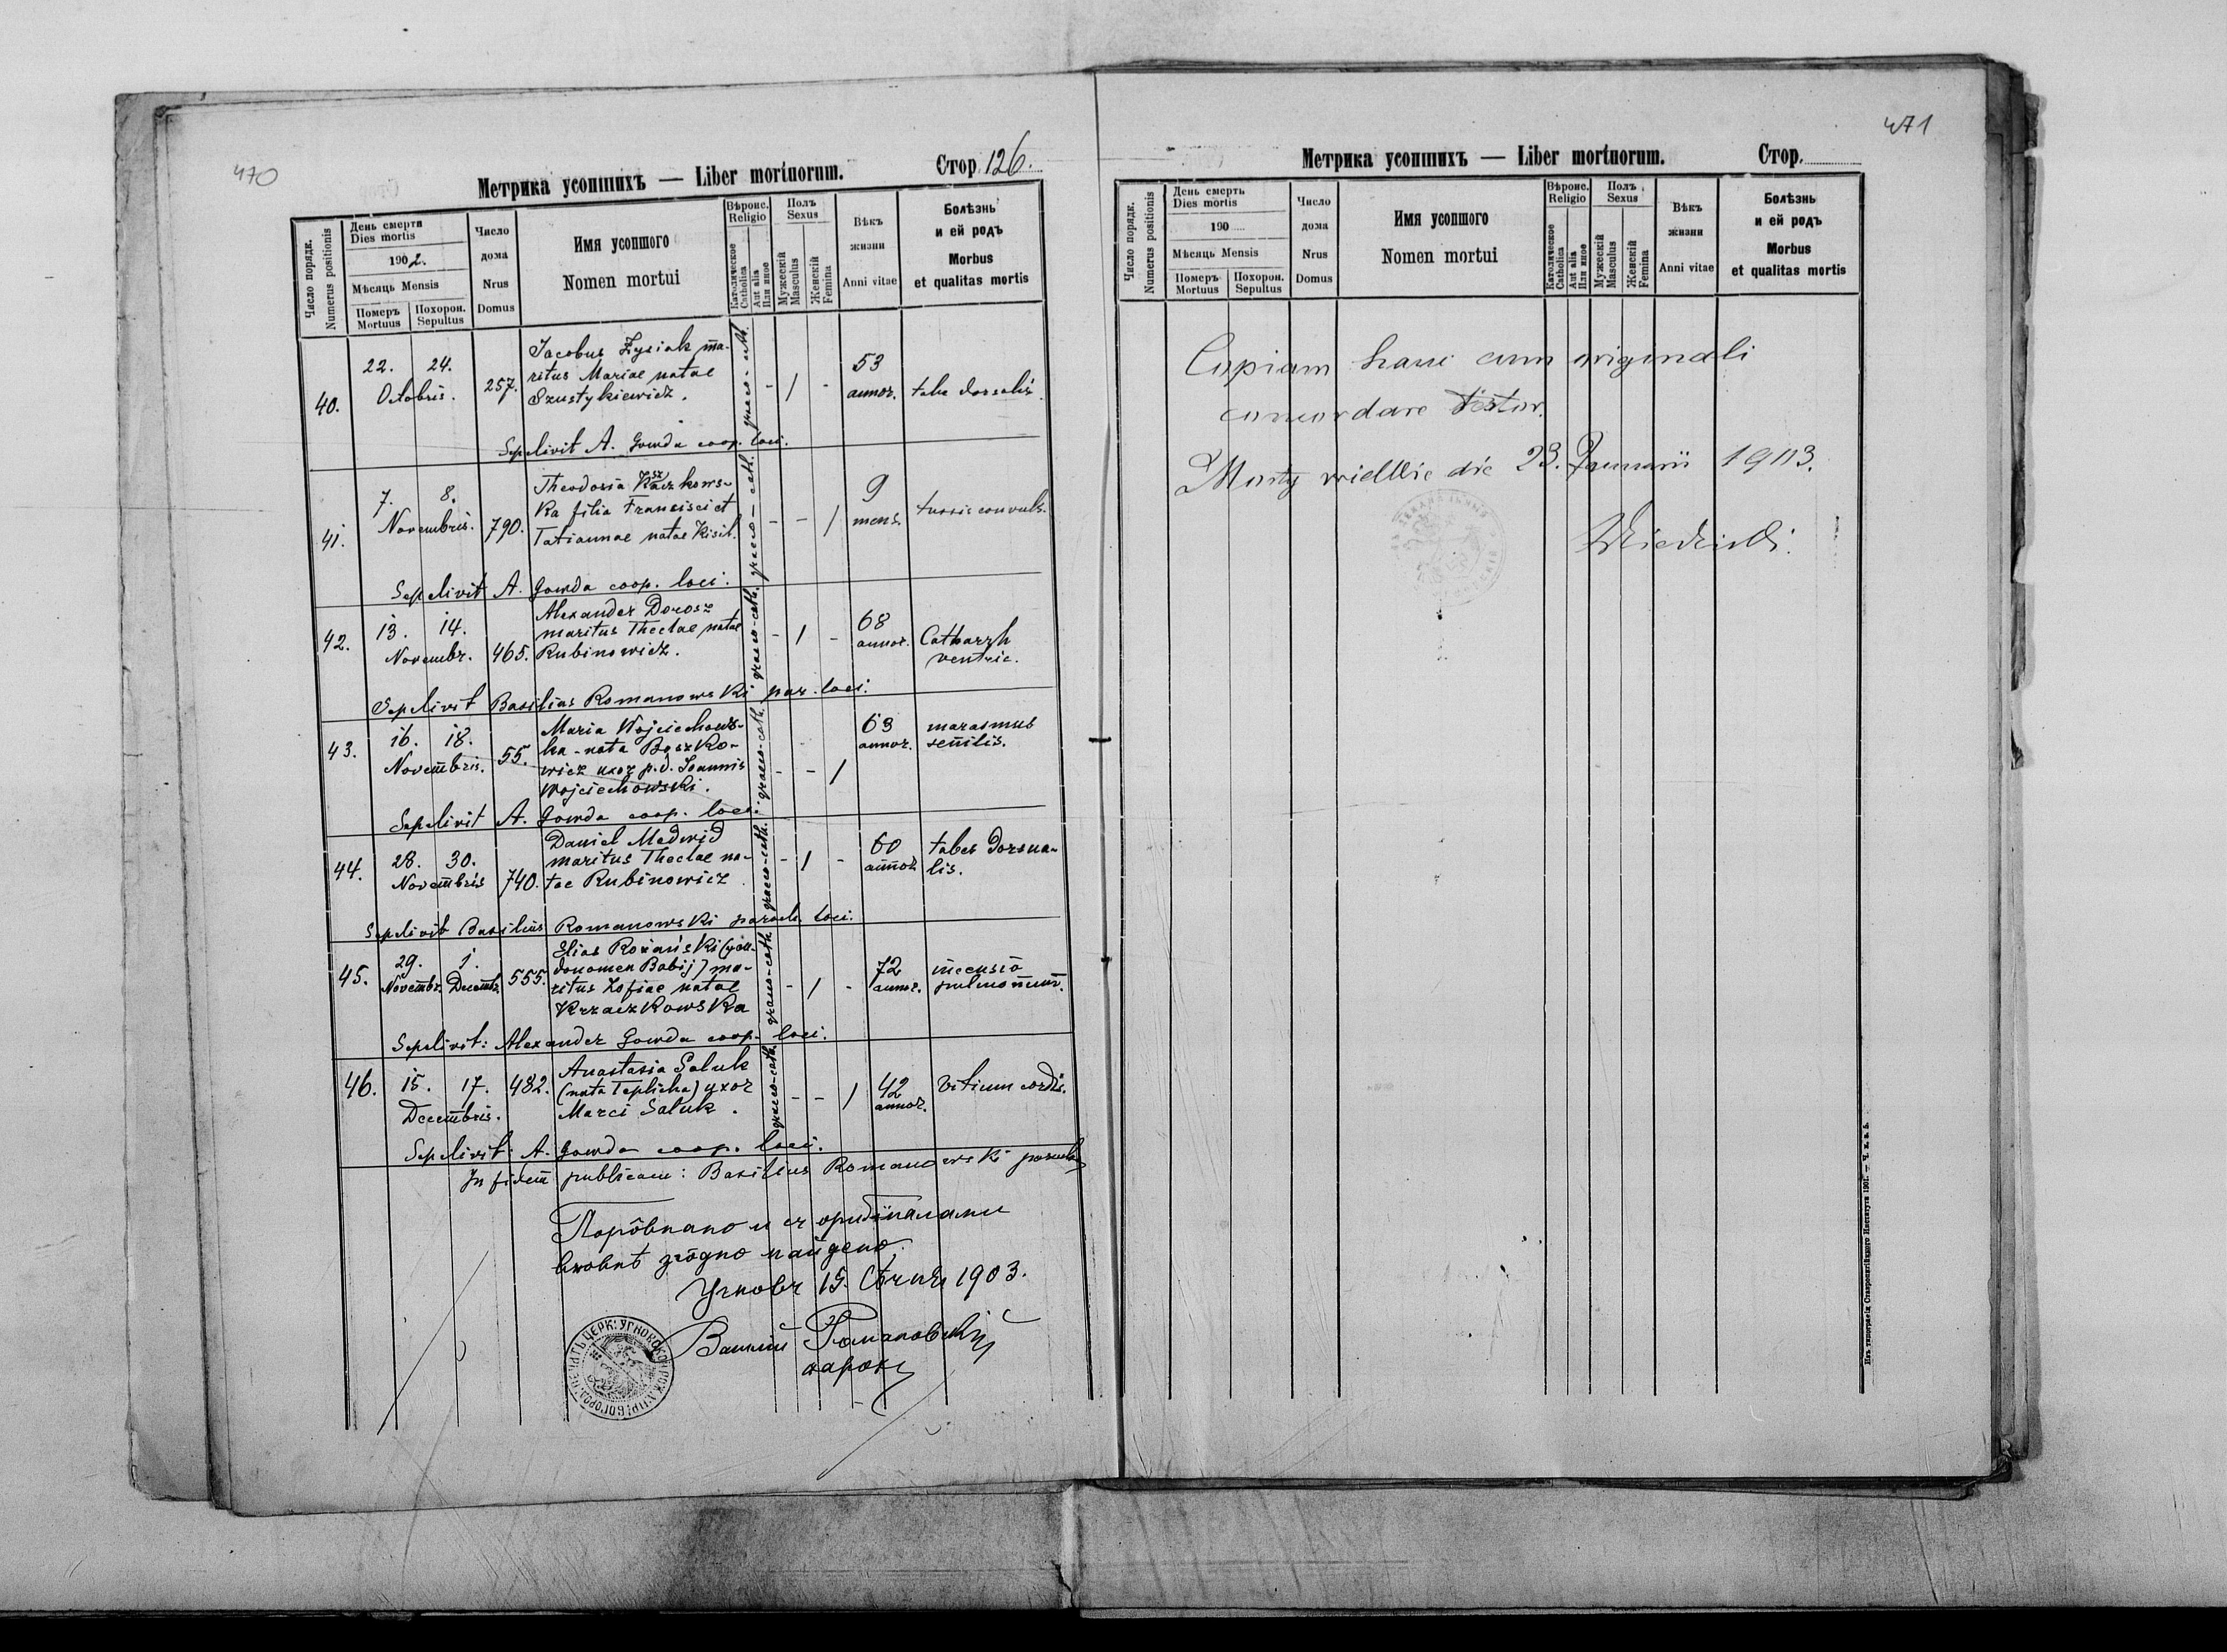 470
Метрика усопшихъ — Liber mortuorum.
Стор. 126.
Число порядк.
Numerus positionis
День смерти
Dies mortis
1902.
Мѣсяць Mensis
Померъ
Mortuus
Похорон.
Sepultus
Число
дома
Nrus
Domus
Имя усопшого
Nomen mortui
Вѣроис.
Religio
Католическое
Catholica
Aut alia
Или иное
Полъ
Sexus
Мужескій
Masculus
Женскій
Femina
Вѣкъ
жизни
Anni vitae
Болѣзнь
и ей родъ
Morbus
et qualitas mortis
40.
22. 24.
Octobris.
257.
Jacobus Zysiak ma-
ritus Mariae natae
Szustykiewicz.
graeco-cath.
- 1 -
53
annor.
tabe dorsalis.
Sepelivit A. Gowda coop. loci.
41.
7. 8.
Novembris.
790.
Theodosia
ka filia Francisci et
Tatiannae natae Kisil.
graeco-cath.
- - 1
9
mens.
tussis convuls.
Sepelivit A. Gowda coop. loci.
42.
13. 14.
Novembr.
465.
Alexander Dorosz
maritus Theclae natae
Rubinowicz.
graeco-cath.
- 1 -
68
annor.
Catharrh
ventric.
Sepelivit Basilius Romanowski par. loci.
43.
16. 18.
Novembris.
55.
Maria Wojciechows-
ka - nata Boszko-
wicz uxor p.d. Joannis
Wojciechowski.
graeco-cath.
- - 1
63
annor.
marasmus
senilis.
Sepelivit A. Gowda coop. loci.
44.
28. 30.
Novembris
740.
Daniel Medwid
maritus Theclae na-
tae Rubinowicz.
graeco-cath.
- 1 -
60
annor.
tabes dorsua-
lis.
Sepelivit Basilius Romanowski paroch. loci.
45.
29. 1.
Novembr. Decembr.
555.
Elias Rożański (
donomen Babij) ma-
ritus Zofiae natae
Krzaczkowska
graeco-cath.
- 1 -
72
annor.
incensio
pulmonum.
Sepelivit: Alexander Gowda coop. loci.
46.
15. 17.
Decembris.
482.
Anastasia Saluk
(nata Teplicka) uxor
Marci Saluk.
graeco-cath.
- - 1
42
annor.
Vitium cordis.
Sepelivit A. Gowda coop. loci.
In fidem publicam: Basilius Romanowski parochus
Порôвнано и съ оригіналами
вповнѣ згôдно найдено.
Угновъ 15. Сѣчня 1903.
Василій Романовскій
парохъ
471
Метрика усопшихъ — Liber mortuorum.
Стор.
Число порядк.
Numerus positionis
День смерть
Dies mortis
190
Мѣсяць Mensis
Померъ
Mortuus
Похорон.
Sepultus
Число
дома
Nrus
Domus
Имя усопшого
Nomen mortui
Вѣроис.
Religio
Католическое
Catholica
Aut alia
Или иное
Полъ
Sexus
Мужескій
Masculus
Женскій
Femina
Вѣкъ
жизни
Anni vitae
Болѣзнь
и ей родъ
Morbus
et qualitas mortis
Copiam hanc cum originali
concordare testor.
Mosty wielkie die 23. Januarii 1903.
Изъ типографіи Ставропигійского Института 1901. — Ч. к. в. 5.